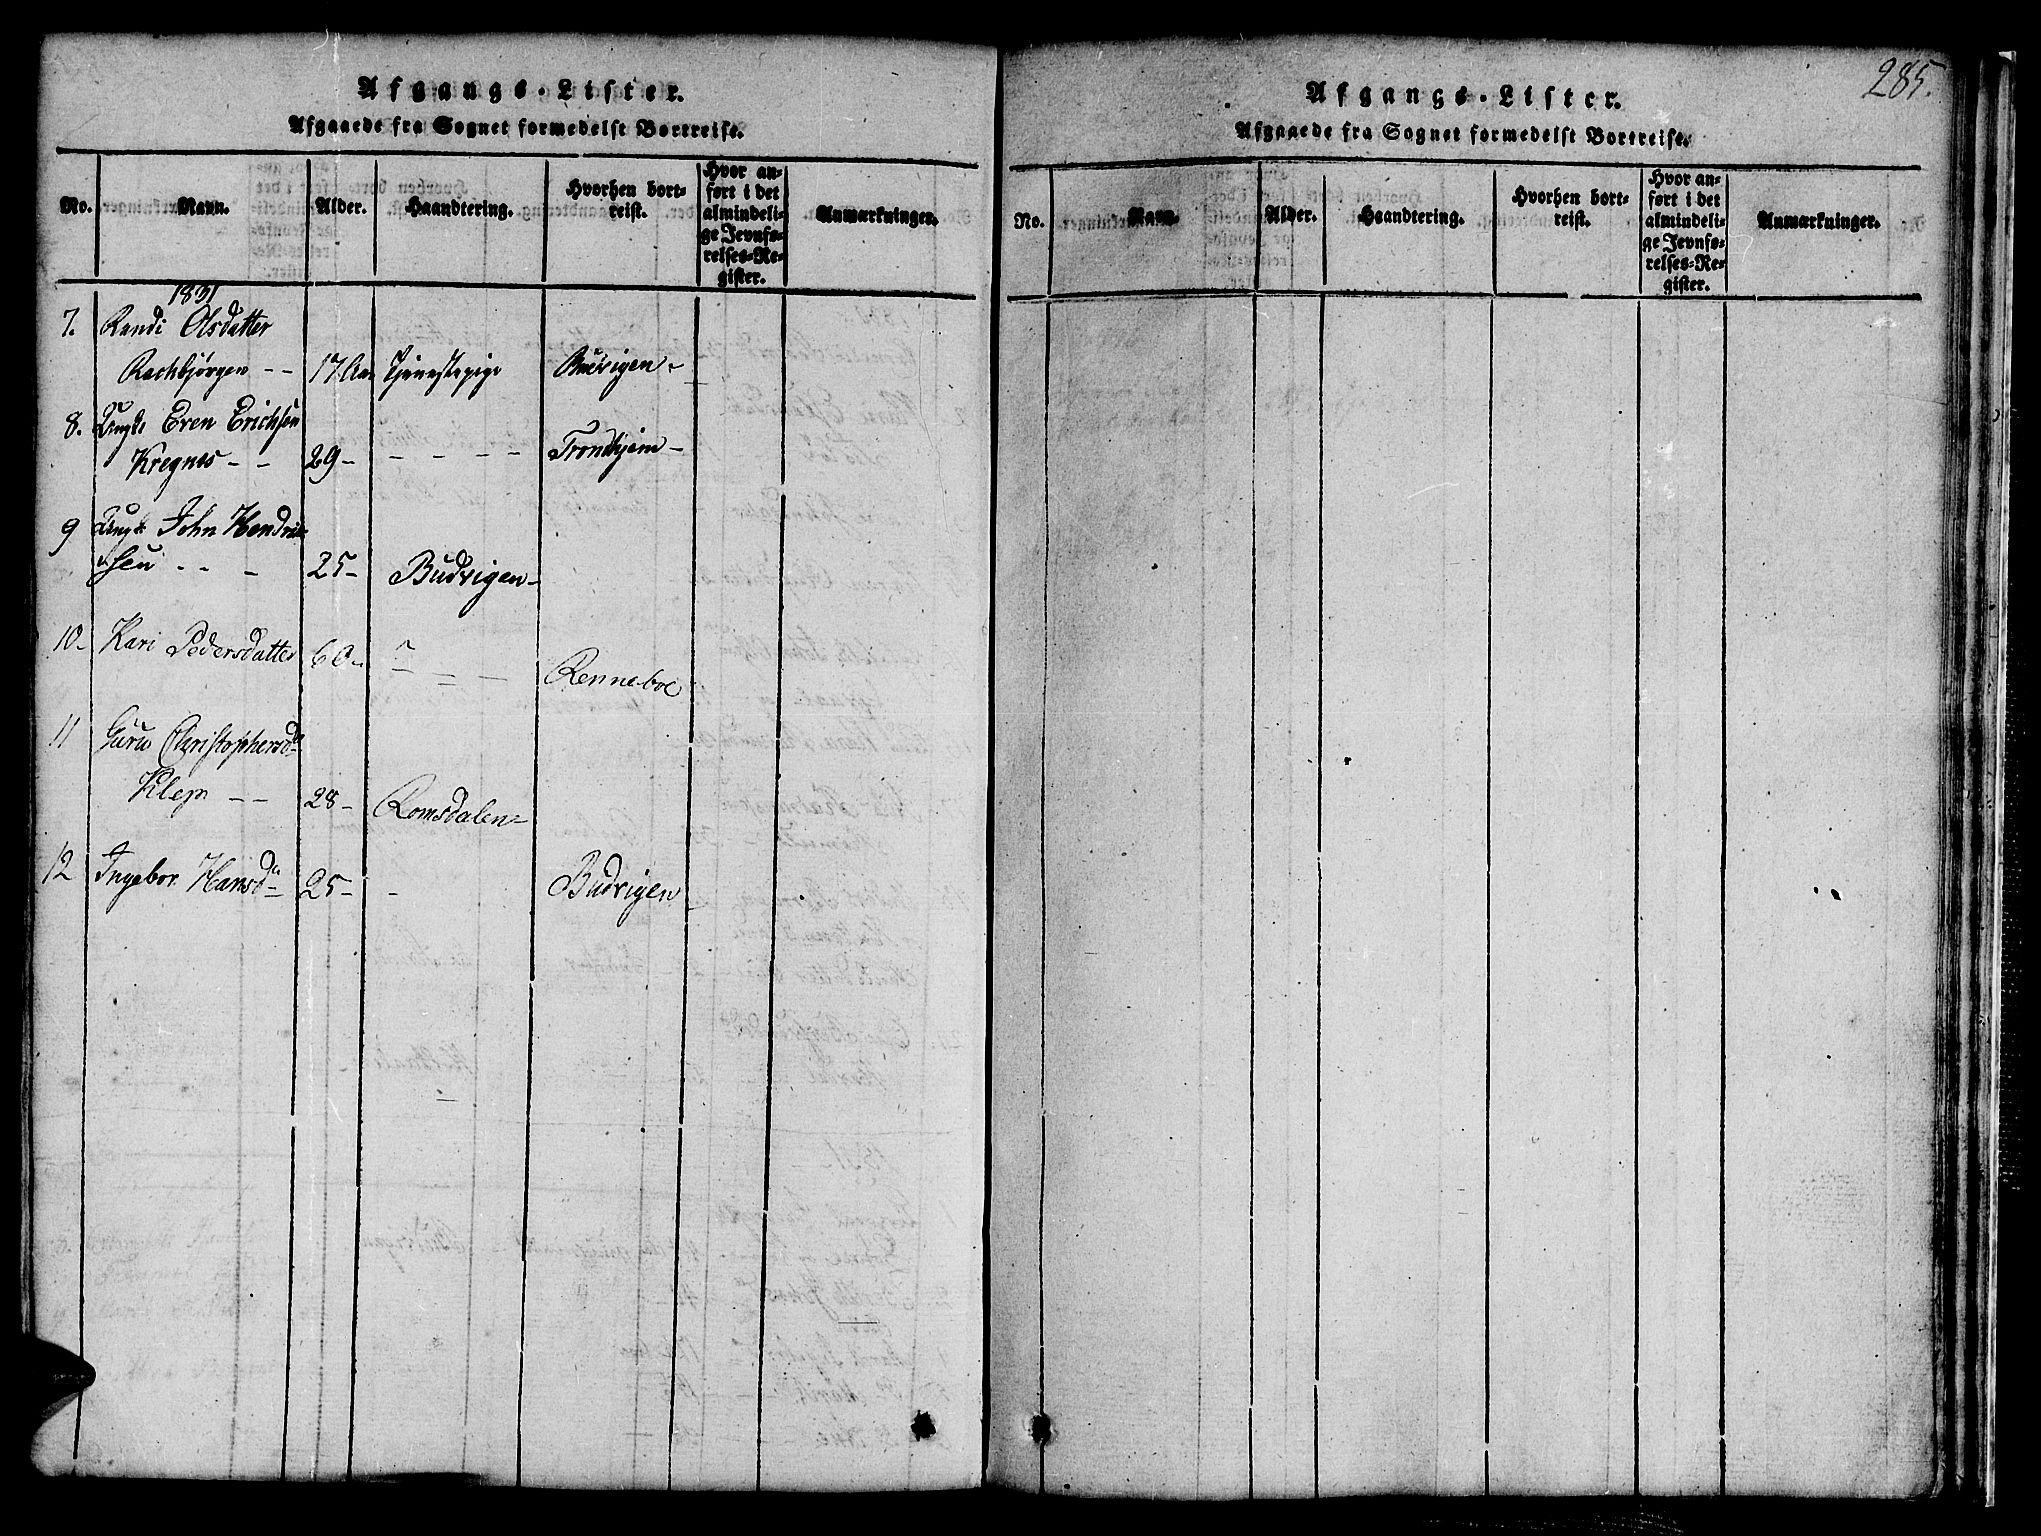 Afgangs-Lister.
Afgaaede fra Sognet formedelst Bortreise.
No. Navn. Alder. Haandtering. Hvorhen bortreist. Hvor anført i det almindelige Jevnførelses-Register. Anmærkninger.
1831
7. Randi Olsdatter
Rachbjørgen - - 17 Aar Tjenestepige Budvigen -
8. Ungk. Even Erichsen
Kregnes - - 29 - - - - - Trondhjem -
9 Ungk. John Hendrik
sen - - - 25 - Budvigen -
10 - Kari Pedersdatter 60 - " - - - Renneboe
11 Guru Christophersd.
Klep - - 28 - Romsdalen -
12 Ingebor Hansd. 25 - - Budvigen -
285.
Afgangs-Lister.
Afgaaede fra Sognet formedelst Bortreise.
No. Navn. Alder. Haandtering. Hvorhen bortreist. Hvor anført i det almindelige Jevnførelses-Register. Anmærkninger.